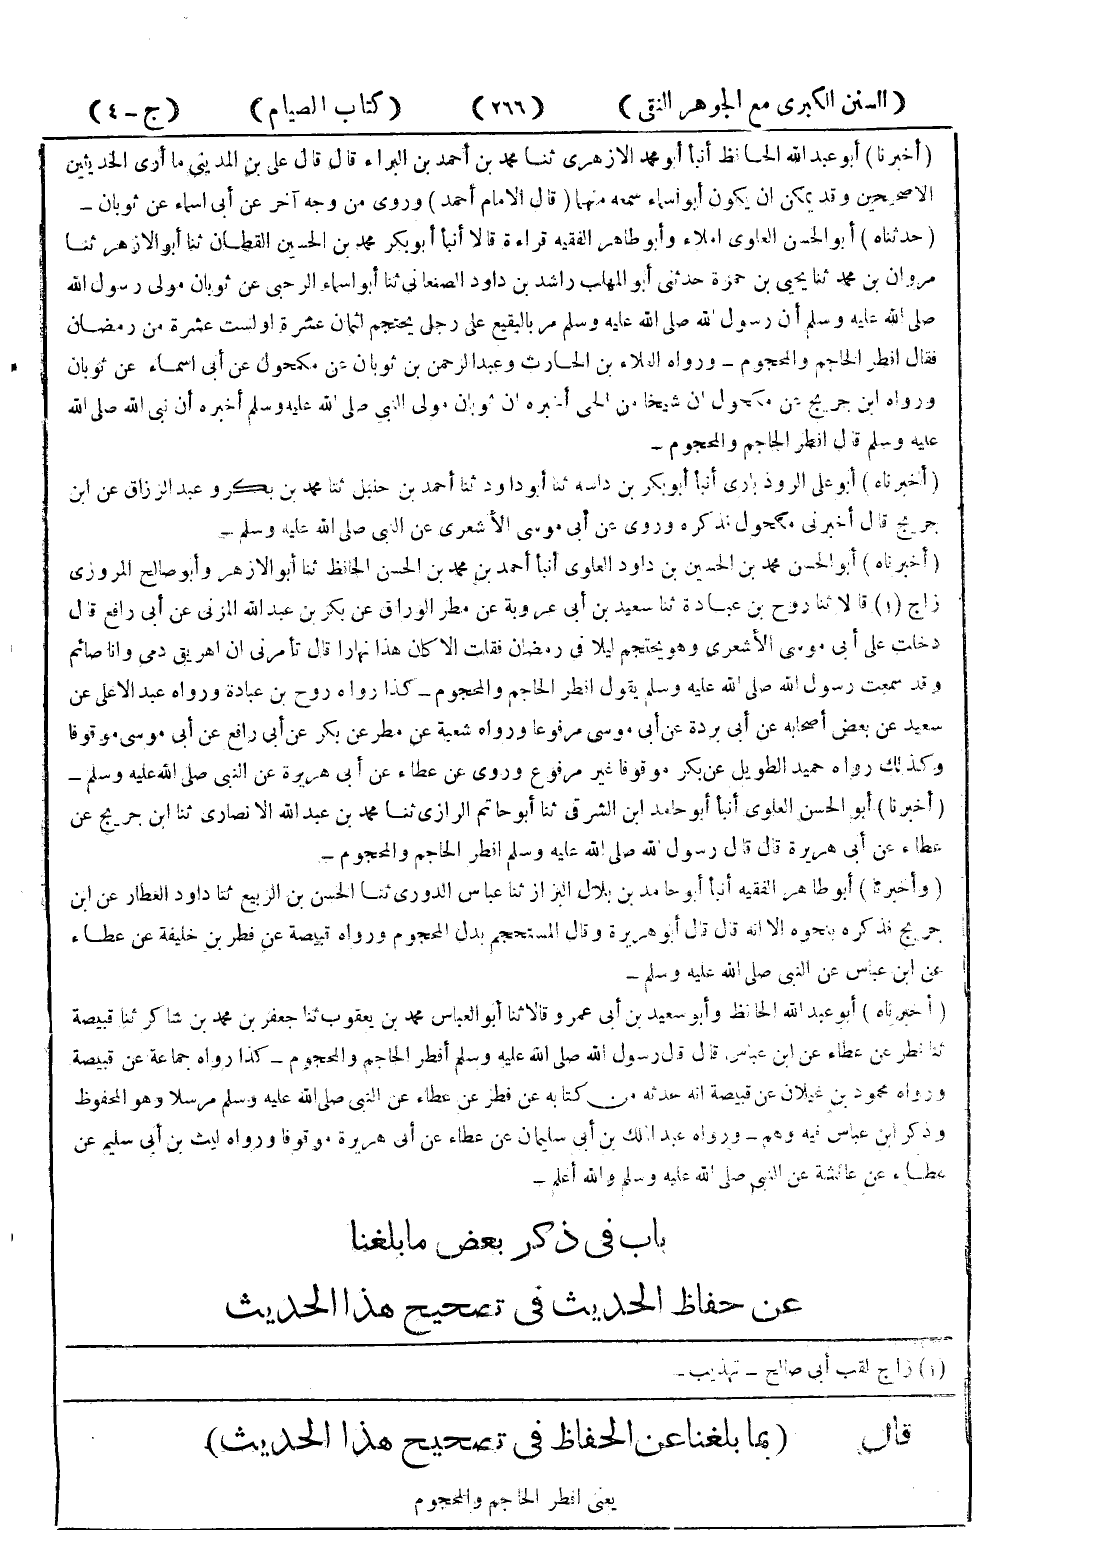 (السنن الكبرى مع الجوهر النقى) (٢٦٦) (كتاب الصيام) (ج - ٤)
(أخبرنا) أبو عبد الله الحافظ أنبأ أبو محمد الازهرى ثنا محمد بن أحمد بن البراء قال قال على بن المديني ما أرى الحديثين
الاصحيحين وقد يمكن ان يكون أبو اسماء سمعه منهما (قال الامام أحمد) وروى من وجه آخر عن أبى اسماء عن ثوبان -
(حدثناه) أبو الحسن العلوى املاء وأبو طاهر الفقيه قراءة قالا أنبأ أبو بكر محمد بن الحسين القطان ثنا أبو الازهر ثنا
مروان بن محمد ثنا يحيى بن حمزة حدثنى أبو المهلب راشد بن داود الصنعانى ثنا أبو اسماء الرحبى عن ثوبان مولى رسول الله
صلى الله عليه وسلم أن رسول الله صلى الله عليه وسلم مر بالبقيع على رجل يحتجم لثمان عشرة اولست عشرة من رمضان
فقال افطر الحاجم والمحجوم - ورواه العلاء بن الحارث وعبد الرحمن بن ثوبان عن مكحول عن أبى اسماء عن ثوبان
ورواه ابن جريج عن مكحول ان شيخا من الحى أخبره ان ثوبان مولى النبي صلى الله عليه وسلم أخبره أن نبى الله صلى الله
عليه وسلم قال افطر الحاجم والمحجوم -
(أخبرناه) أبو على الروذبارى أنبأ أبو بكر بن داسه ثنا أبو داود ثنا أحمد بن حنبل ثنا محمد بن بكر وعبد الرزاق عن ابن
جريج قال أخبرنى مكحول فذكره وروى عن أبى موسى الأشعرى عن النبى صلى الله عليه وسلم -
(أخبرناه) أبو الحسن محمد بن الحسين بن داود العلوى أنبأ أحمد بن محمد بن الحسن الحافظ ثنا أبو الازهر وأبو صالح المروزى
زاج (١) قالا ثنا روح بن عبادة ثنا سعيد بن أبى عروبة عن مطر الوراق عن بكر بن عبد الله المزنى عن أبى رافع قال
دخلت على أبى موسى الأشعرى وهو يحتجم ليلا فى رمضان فقلت الاكان هذا نهارا قال تأمرنى ان اهريق دمى وانا صائم
وقد سمعت رسول الله صلى الله عليه وسلم يقول افطر الحاجم والمحجوم - كذا رواه روح بن عبادة ورواه عبد الاعلى عن
سعيد عن بعض أصحابه عن أبى بردة عن أبى موسى مرفوعا ورواه شعبة عن مطر عن بكر عن أبى رافع عن أبى موسى موقوفا
وكذلك رواه حميد الطويل عن بكر موقوفا غير مرفوع وروى عن عطاء عن أبى هريرة عن النبى صلى الله عليه وسلم -
(أخبرنا) أبو الحسن العلوى أنبأ أبو حامد ابن الشرقى ثنا أبو حاتم الرازى ثنا محمد بن عبد الله الانصارى ثنا ابن جريج عن
عطاء عن أبى هريرة قال قال رسول الله صلى الله عليه وسلم افطر الحاجم والمحجوم -
(وأخبرنا) أبو طاهر الفقيه أنبأ أبو حامد بن بلال البزاز ثنا عباس الدورى ثنا الحسن بن الربيع ثنا داود العطار عن ابن
جريج فذكره بنحوه الا انه قال قال أبو هريرة وقال المستحجم بدل المحجوم ورواه قبيصة عن فطر بن خليفة عن عطاء
عن ابن عباس عن النبى صلى الله عليه وسلم -
(أخبرناه) أبو عبد الله الحافظ وأبو سعيد بن أبى عمرو قالا ثنا أبو العباس محمد بن يعقوب ثنا جعفر بن محمد بن شاكر ثنا قبيصة
ثنا فطر عن عطاء عن ابن عباس قال قال رسول الله صلى الله عليه وسلم أفطر الحاجم والمحجوم - كذا رواه جماعة عن قبيصة
ورواه محمود بن غيلان عن قبيصة انه حدثه من كتابه عن فطر عن عطاء عن النبى صلى الله عليه وسلم مرسلا وهو المحفوظ
وذكر ابن عباس فيه وهم - ورواه عبد الملك بن أبي سليمان عن عطاء عن أبى هريرة موقوفا ورواه ليث بن أبى سليم عن
عطاء عن عائشة عن النبي صلى الله عليه وسلم والله أعلم -
باب فى ذكر بعض ما بلغنا
عن حفاظ الحديث فى تصحيح هذا الحديث
(١) زاج لقب أبى صالح - تهذيب -
قال (بما بلغنا عن الحفاظ فى تصحيح هذا الحديث)
يعنى افطر الحاجم والمحجوم